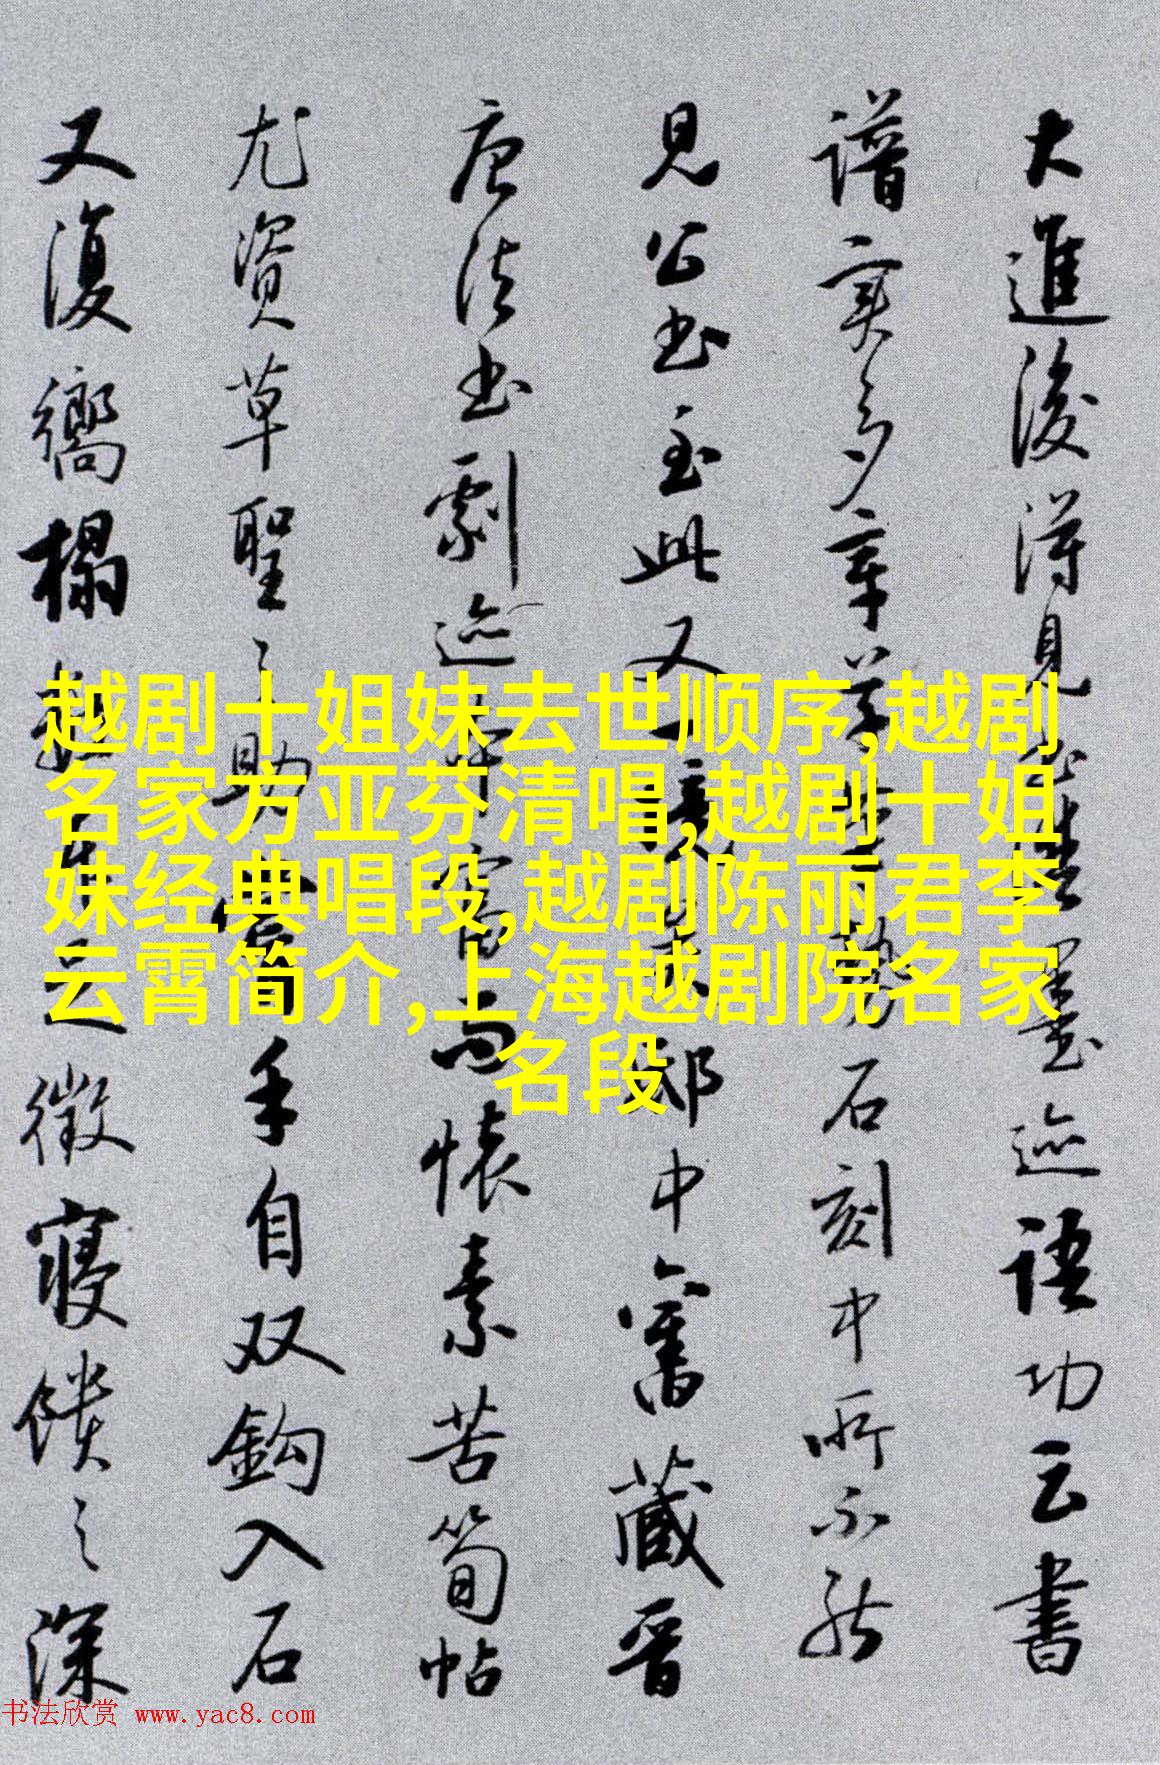 大進後得見墨迹語功云書
譜实多章草勢石刻中所不能
見公书至此又一變矣邸中舊藏晉
唐法书劇迹而懷素苦筍帖
尤資草聖之助手自双鈎入石
又復嚮榻徵寢饋之深
越剧十姐妹去世顺序,越剧
名家方亚芬清唱,越剧十姐
妹经典唱段,越剧陈丽君李
云霄简介,上海越剧院名家
名段
书法欣赏 www.yac8.com